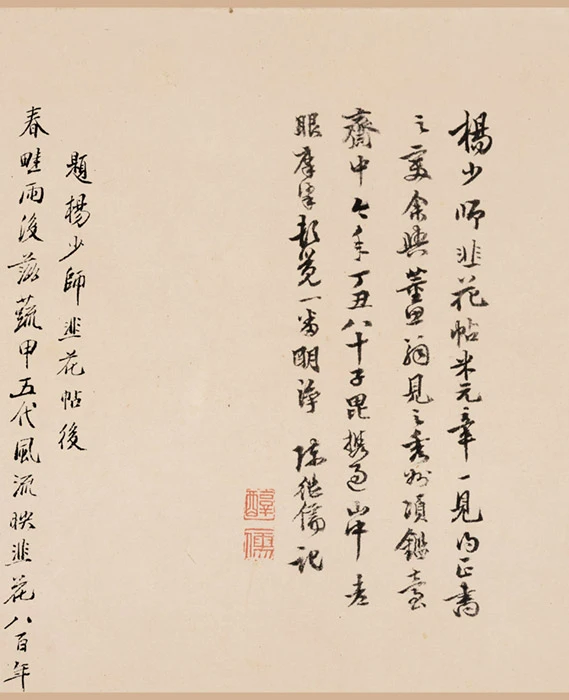 楊少師韭花帖米元章一見正書
之變余與董思翁見之秀州項鑑臺
齋中今年丁丑八十子毘攜過山中老
眼摩挲覺一番明淨 陳繼儒記
醇儒
題楊少師韭花帖後
春畦雨後滋蔬甲五代風流映韭花八百年